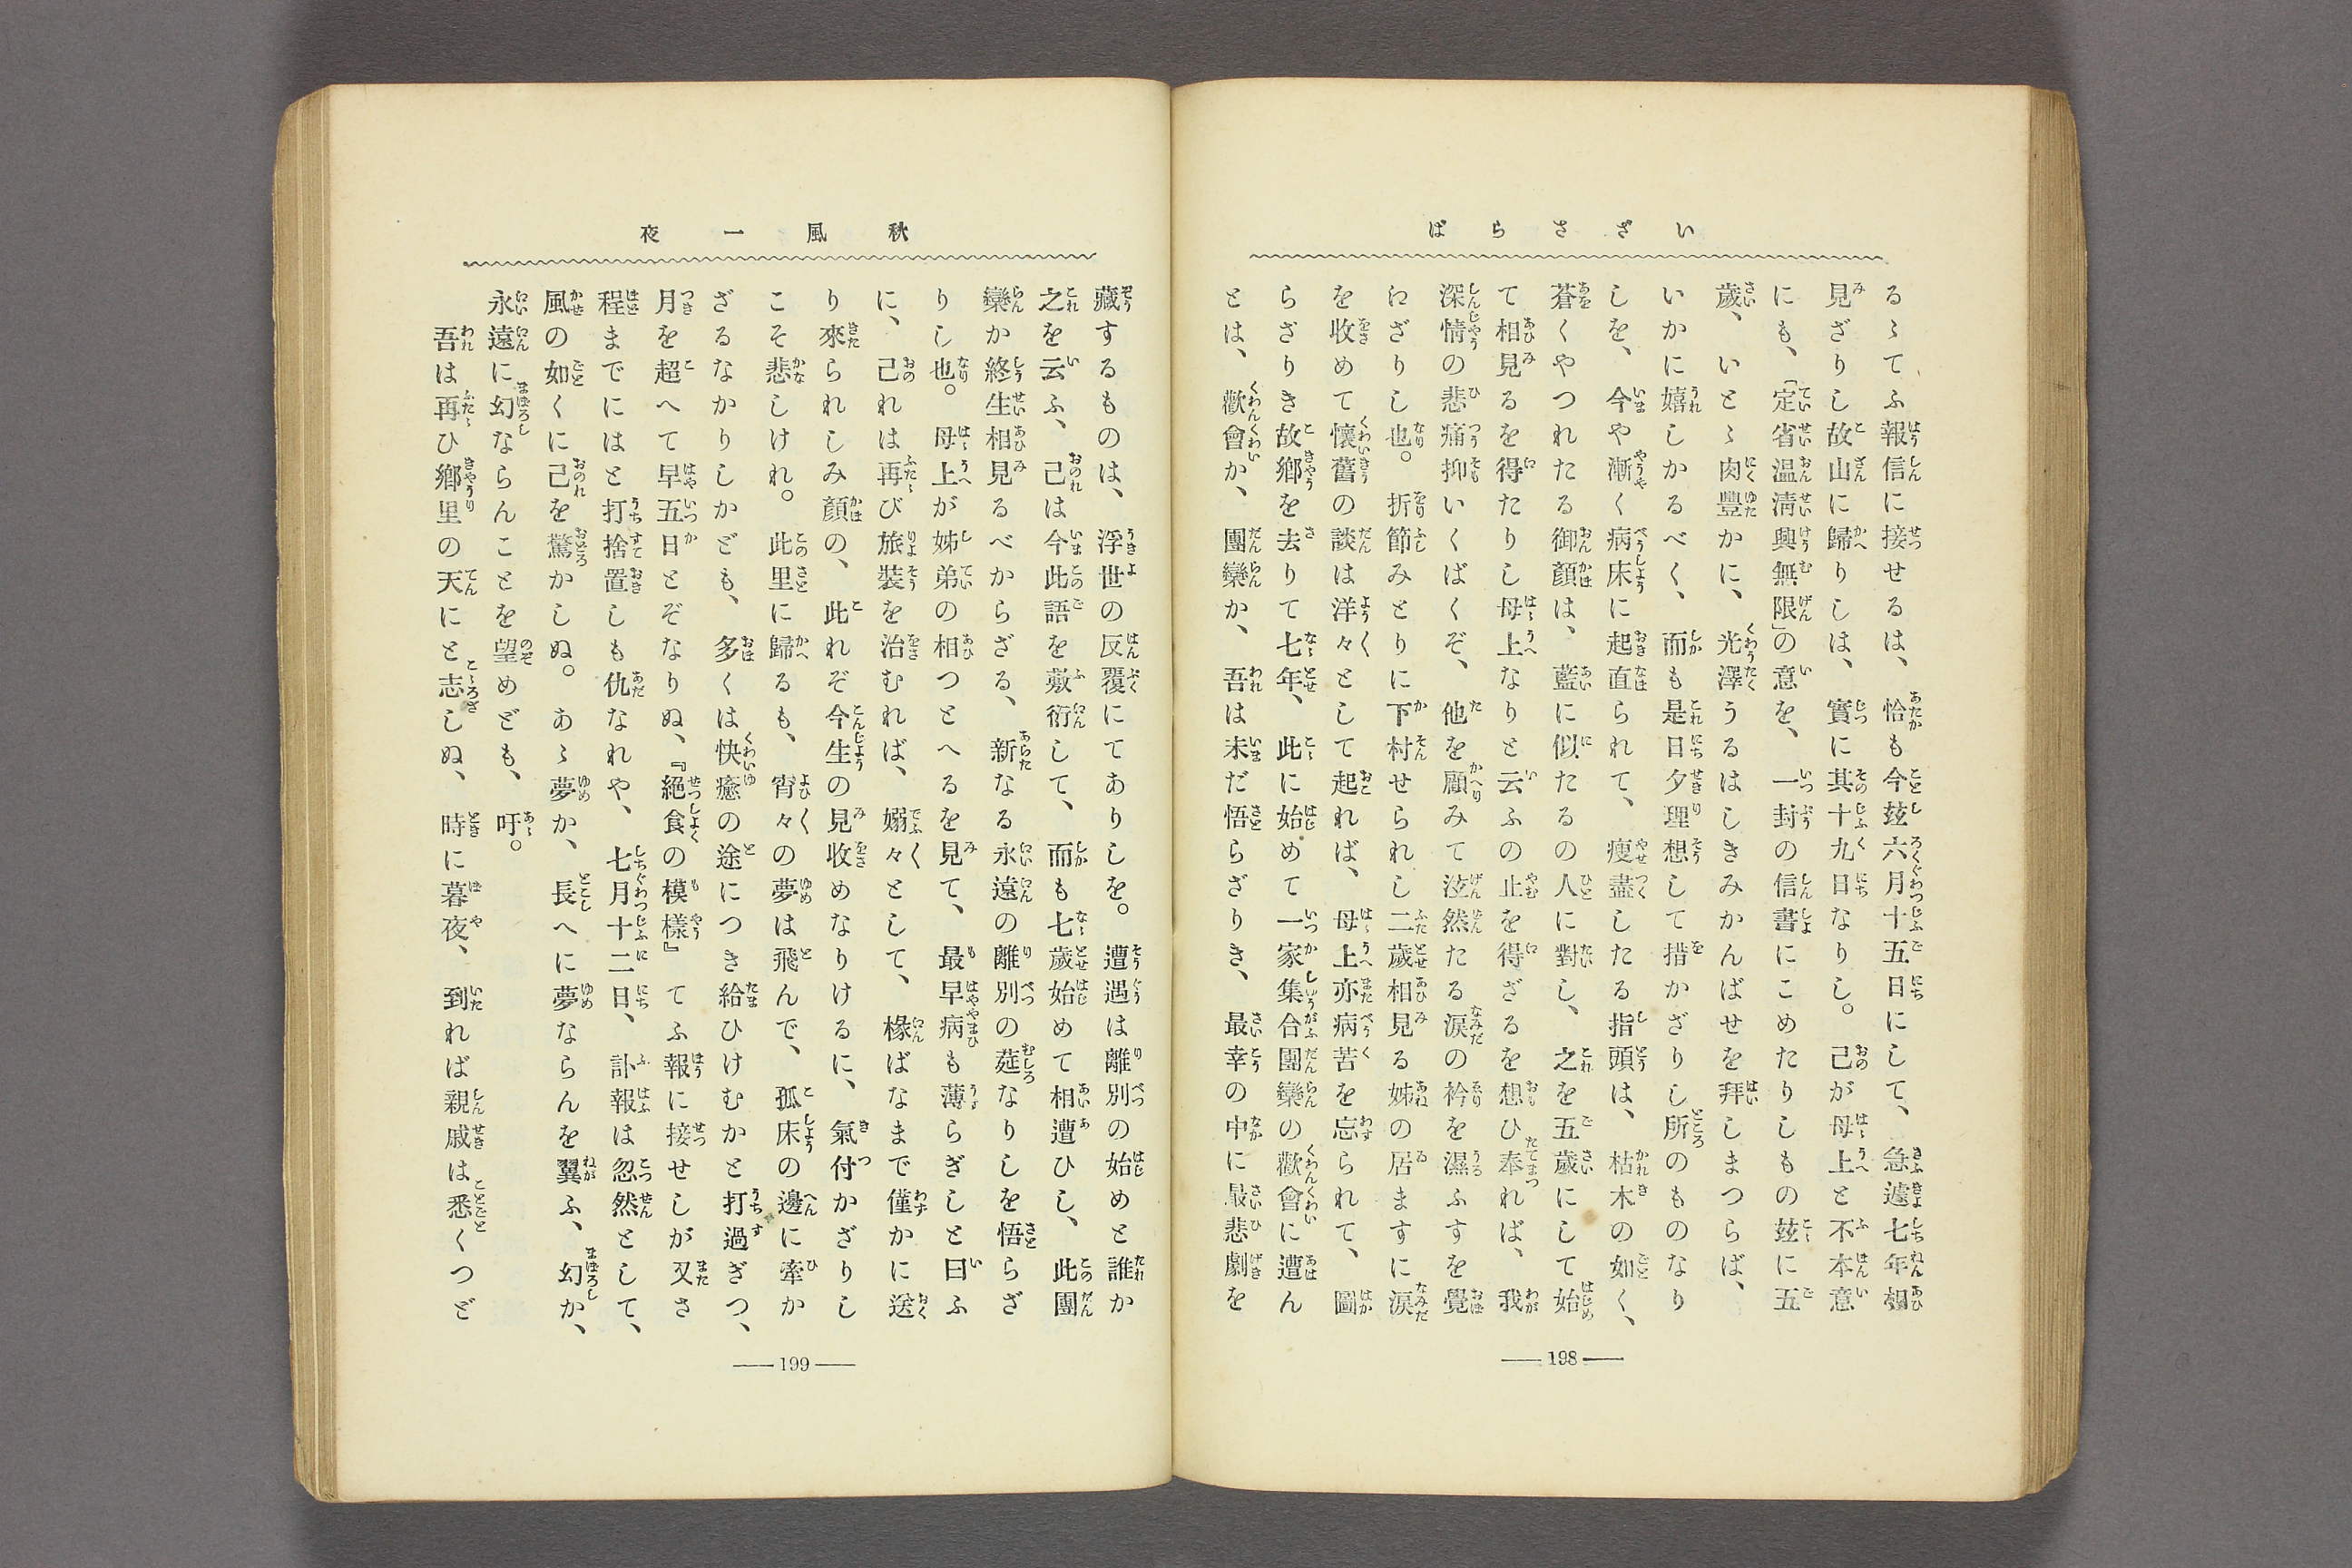 いざさらば
るゝてふ報信に接せるは、恰も今玆六月十五日にして、急遽七年相
見ざりし故山に歸りしは、實に其十九日なりし。己が母上と不本意
にも、「定省温凊興無限」の意を、一封の信書にこめたりしもの玆に五
歲、いとゝ肉豐かに、光澤うるはしきみかんばせを拜しまつらば、
いかに嬉しかるべく、而も是日夕理想して措かざりし所のものなり
しを、今や漸く病床に起直られて、瘦盡したる指頭は、枯木の如く、
蒼くやつれたる御顏は、藍に似たるの人に對し、之を五歲にして始
て相見るを得たりし母上なりと云ふの止を得ざるを想ひ奉れば、我
深情の悲痛抑いくばくぞ、他を顧みて泫然たる淚の衿を濕ふすを覺
わざりし也。折節みとりに下村せられし二歲相見る姊の居ますに淚
を收めて懷舊の談は洋々として起れば、母上亦病苦を忘られて、圖
らざりき故鄕を去りて七年、此に始めて一家集合團欒の歡會に遭ん
とは、歡會か、團欒か、吾は未だ悟らざりき、最幸の中に最悲劇を
198
秋風一夜
藏するものは、浮世の反覆にてありしを。遭遇は離別の始めと誰か
之を云ふ、己は今此語を敷衍して、而も七歲始めて相遭ひし、此團
欒か終生相見るべからざる、新なる永遠の離別の莚なりしを悟らざ
りし也。母上が姊弟の相つとへるを見て、最早病も薄らぎしと曰ふ
に、己れは再び旅裝を治むれば、嫋々として、椽ばなまで僅かに送
り來られしみ顏の、此れぞ今生の見收めなりけるに、氣付かざりし
こそ悲しけれ。此里に歸るも、宵々の夢は飛んで、孤床の邊に牽か
ざるなかりしかども、多くは快癒の途につき給ひけむかと打過ぎつ、
月を超へて早五日とぞなりぬ、『絕食の模樣』てふ報に接せしが又さ
程までにはと打捨置しも仇なれや、七月十二日、訃報は忽然として、
風の如くに己を驚かしぬ。あゝ夢か、長へに夢ならんを翼ふ、幻か、
永遠に幻ならんことを望めども、吁。
吾は再ひ鄕里の天にと志しぬ、時に暮夜、到れば親戚は悉くつど
199